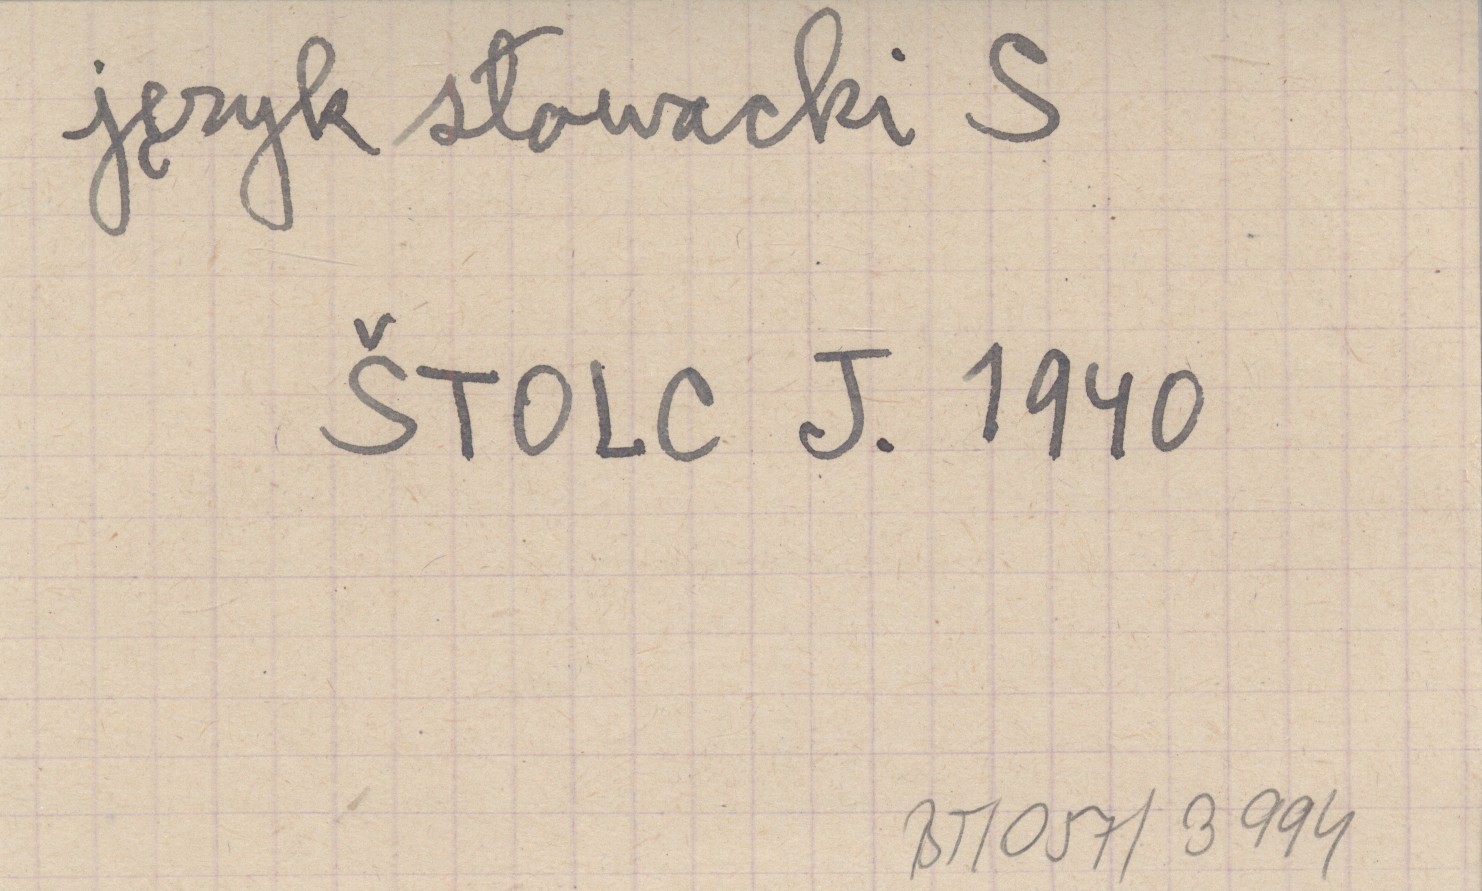 język słowacki S
ŠTOLC J. 1940
BT/057/3994